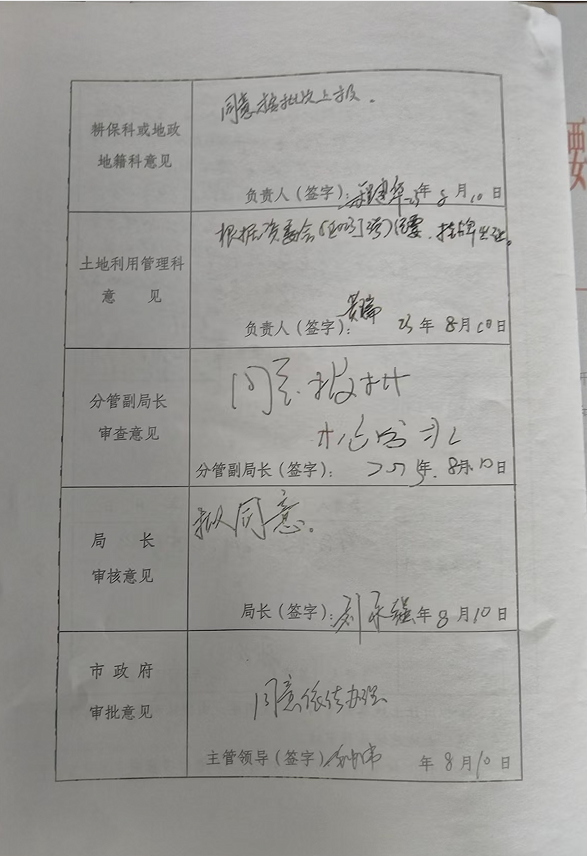 耕保科或地政
地籍科意见
同意按批次上报。
负责人（签字）： 年 8月10日
土地利用管理科
意 见
根据资委会 纪要，挂牌出让。
负责人（签字）： 23年 8月10日
分管副局长
审查意见
同意报批
分管副局长（签字）： 年 8月10日
局 长
审核意见
拟同意。
局长（签字）： 年8月10日
市政府
审批意见
同意依法办理
主管领导（签字） 年8月10日